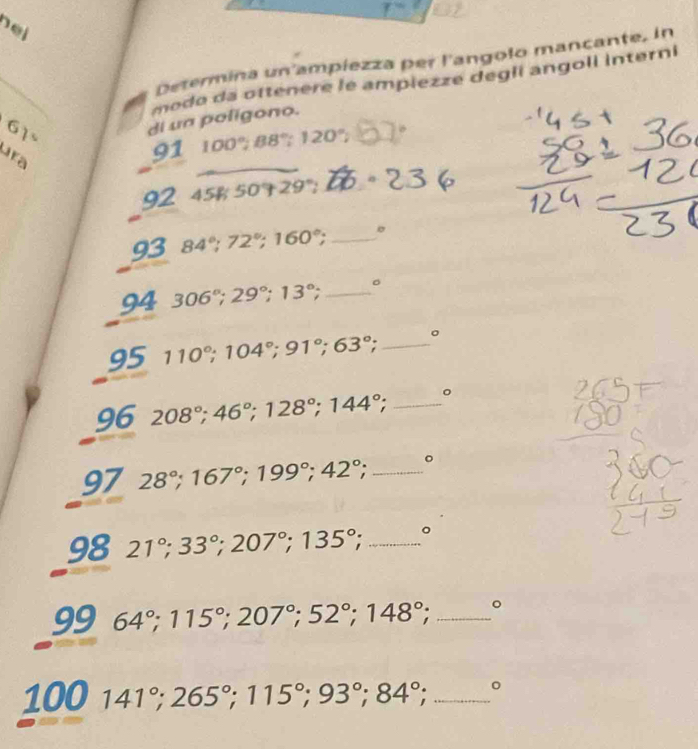 nei
61°
ura
Determina un'ampiezza per l'angolo mancante, in
modo da ottenere le ampiezze degli angoli interni
di un poligono.
91 100°; 88°; 120°; 52°
92 45°; 50°; 29°; = 236
93 84°; 72°; 160°; ____°
94 306°; 29°; 13°; ____°
95 110°; 104°; 91°; 63°; ____°
96 208°; 46°; 128°; 144°; ____°
97 28°; 167°; 199°; 42°; ____°
98 21°; 33°; 207°; 135°; ____°
99 64°; 115°; 207°; 52°; 148°; ____°
100 141°; 265°; 115°; 93°; 84°; ____°
45+
50+
29=
124
36
12
23
265+
180
360-
141
219